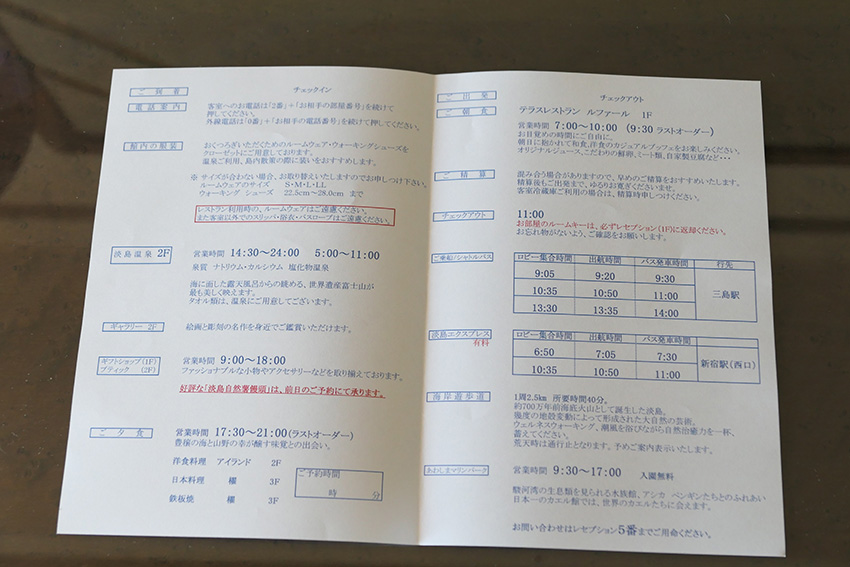 ご到着
チェックイン
電話案内
客室へのお電話は「2番」+「お相手の部屋番号」を続けて
押してください。
外線電話は「0番」+「お相手の電話番号」を続けて押してください。
館内の服装
おくつろぎいただくためのルームウェア・ウォーキングシューズを
クローゼットにご用意しております。
温泉ご利用、島内散策の際に装いをおすすめします。
※ サイズが合わない場合、お取り替えいたしますのでお申しつけ下さい。
ルームウェアのサイズ S・M・L・LL
ウォーキング シューズ 22.5cm～28.0cm まで
レストラン利用時の、ルームウェアはご遠慮ください。
また客室以外でのスリッパ・浴衣・バスローブはご遠慮ください。
淡島温泉 2F
営業時間 14:30～24:00 5:00～11:00
泉質 ナトリウム・カルシウム 塩化物温泉
海に面した露天風呂からの眺める、世界遺産富士山が
最も美しく映えます。
タオル類は、温泉にご用意してございます。
ギャラリー 2F
絵画と彫刻の名作を身近でご鑑賞いただけます。
ギフトショップ(1F)
ブティック (2F)
営業時間 9:00～18:00
ファッショナブルな小物やアクセサリーなどを取り揃えております。
好評な「淡島自然薯饅頭」は、前日のご予約にて承ります。
ご夕食
営業時間 17:30～21:00(ラストオーダー)
豊穣の海と山野の幸が醸す味覚との出会い。
洋食料理 アイランド 2F
日本料理 欅 3F
鉄板焼 欅 3F
ご予約時間
時 分
ご出発
チェックアウト
ご朝食
テラスレストラン ルファール 1F
営業時間 7:00～10:00 (9:30 ラストオーダー)
お目覚めの時間にご自由に。
朝日に抱かれて和食、洋食のカジュアルブッフェをお楽しみください。
オリジナルジュース、こだわりの鮮卵、ミート類、自家製豆腐など・・・
ご精算
混み合う場合がありますので、早めのご精算をおすすめいたします。
精算後もご出発まで、ゆるりお寛ぎくださいませ。
客室冷蔵庫ご利用の場合は、精算時申しつけください。
チェックアウト
11:00
お部屋のルームキーは、必ずレセプション(1F)に返却ください。
お忘れ物がないよう、ご確認をお願いします。
ご乗船/シャトルバス
ロビー集合時間 出航時間 バス発車時間 行先
9:05 9:20 9:30
10:35 10:50 11:00 三島駅
13:30 13:35 14:00
淡島エクスプレス
有料
ロビー集合時間 出航時間 バス発車時間
6:50 7:05 7:30 新宿駅(西口)
10:35 10:50 11:00
海岸遊歩道
1周2.5km 所要時間40分。
約700万年前海底火山として誕生した淡島。
幾度の地殻変動によって形成された大自然の芸術。
ウェルネスウォーキング、潮風を浴びながら自然治癒力を一杯、
蓄えてください。
荒天時は通行止となります。予めご案内表示いたします。
あわしまマリンパーク
営業時間 9:30～17:00 入園無料
駿河湾の生息類を見られる水族館、アシカ ペンギンたちとのふれあい
日本一のカエル館では、世界のカエルたちに会えます。
お問い合わせはレセプション5番までご用命ください。